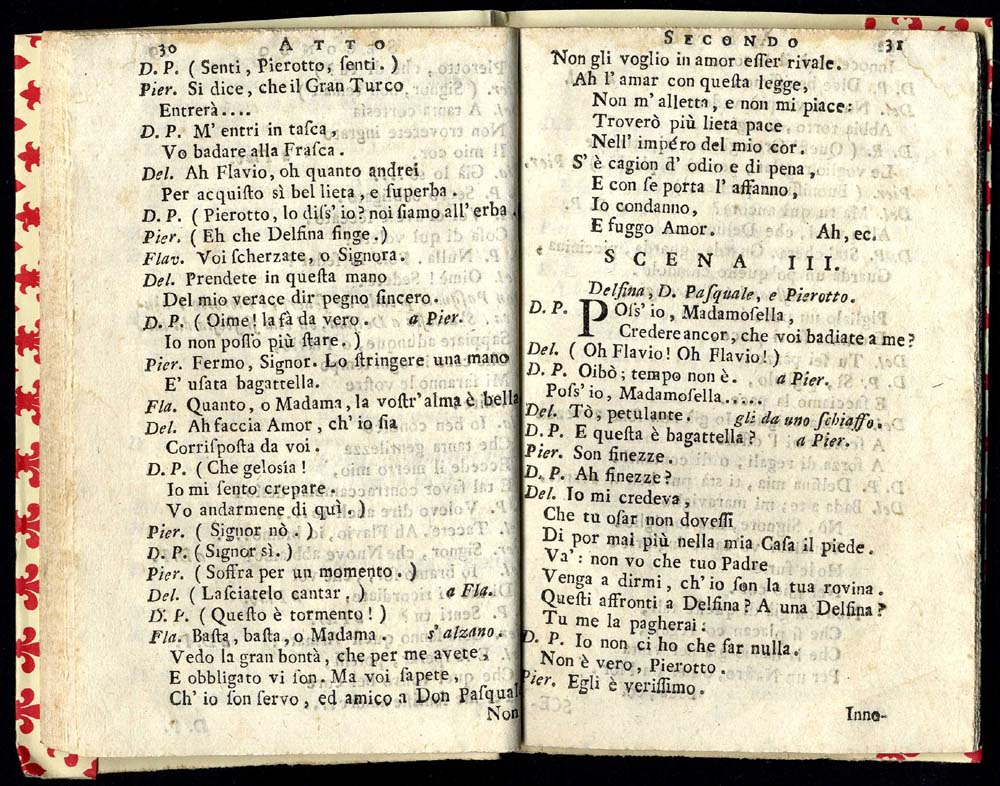 30 ATTO
D. P. ( Senti, Pierotto, ſenti. )
Pier. Si dice, che il Gran Turco
Entrerà....
D. P. M' entri in taſca,
Vo badare alla Fraſca.
Del. Ah Flavio, oh quanto andrei
Per acquiſto sì bel lieta, e ſuperba.
D. P. ( Pierotto, lo diſſ' io? noi ſiamo all' erba.
Pier. ( Eh che Delfina finge. )
Flav. Voi ſcherzate, o Signora.
Del. Prendete in queſta mano
Del mio verace dir pegno ſincero.
D. P. ( Oime! la fà da vero. a Pier.
Io non poſſo più ſtare. )
Pier. Fermo, Signor. Lo ſtringere una mano
E' uſata bagattella.
Fla. Quanto, o Madama, la voſtr' alma è bella
Del. Ah faccia Amor, ch' io ſia
Corriſpoſta da voi.
D. P. ( Che geloſia!
Io mi ſento crepare.
Vo andarmene di quì. )
Pier. ( Signor nò. )
D. P. ( Signor sì. )
Pier. ( Soffra per un momento. )
Del. ( Laſciatelo cantar. ) a Fla.
D. P. ( Queſto è tormento! )
Fla. Baſta, baſta, o Madama. s' alzano.
Vedo la gran bontà, che per me avete,
E obbligato vi ſon. Ma voi ſapete,
Ch' io ſon ſervo, ed amico a Don Paſqual
Non
SECONDO 31
Non gli voglio in amor eſſer rivale.
Ah l' amar con queſta legge,
Non m' alletta, e non mi piace:
Troverò più lieta pace
Nell' impéro del mio cor.
S' è cagion d' odio e di pena,
E con ſe porta l' affanno,
Io condanno,
E fuggo Amor. Ah, ec.
SCENA III.
Delfina, D. Paſquale, e Pierotto.
D. P. POſſ' io, Madamoſella,
Credere ancor, che voi badiate a me?
Del. ( Oh Flavio! Oh Flavio! )
D. P. Oibò; tempo non è. a Pier.
Poſſ' io, Madamoſella.....
Del. Tò, petulante. gli da uno ſchiaffo.
D. P. E queſta è bagattella? a Pier.
Pier. Son finezze.
D. P. Ah finezze?
Del. Io mi credeva,
Che tu oſar non doveſſi
Di por mai più nella mia Caſa il piede.
Va': non vo che tuo Padre
Venga a dirmi, ch' io ſon la tua rovina.
Queſti affronti a Delfina? A una Delfina?
Tu me la pagherai:
D. P. Io non ci ho che far nulla.
Non è vero, Pierotto.
Pier. Egli è veriſſimo.
Inno-